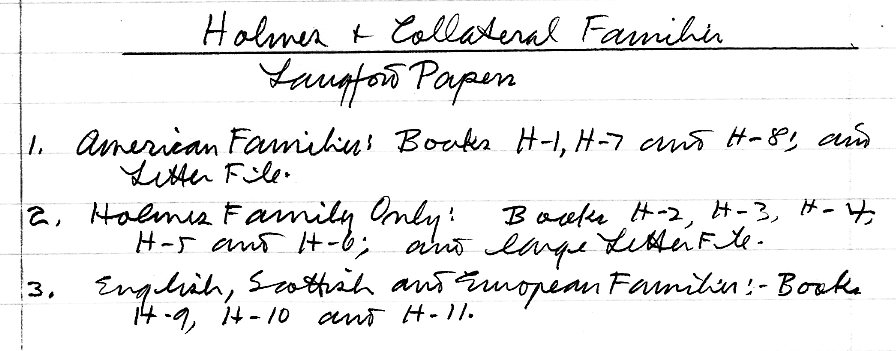 Holmes & Collateral Families
Langford Papers
1. American Families: Books H-1, H-7 and H-8; and
Letter File.
2. Holmes Family Only: Books H-2, H-3, H-4,
H-5 and H-6; and large Letter File.
3. English, Scottish and European Families:- Books
H-9, H-10 and H-11.